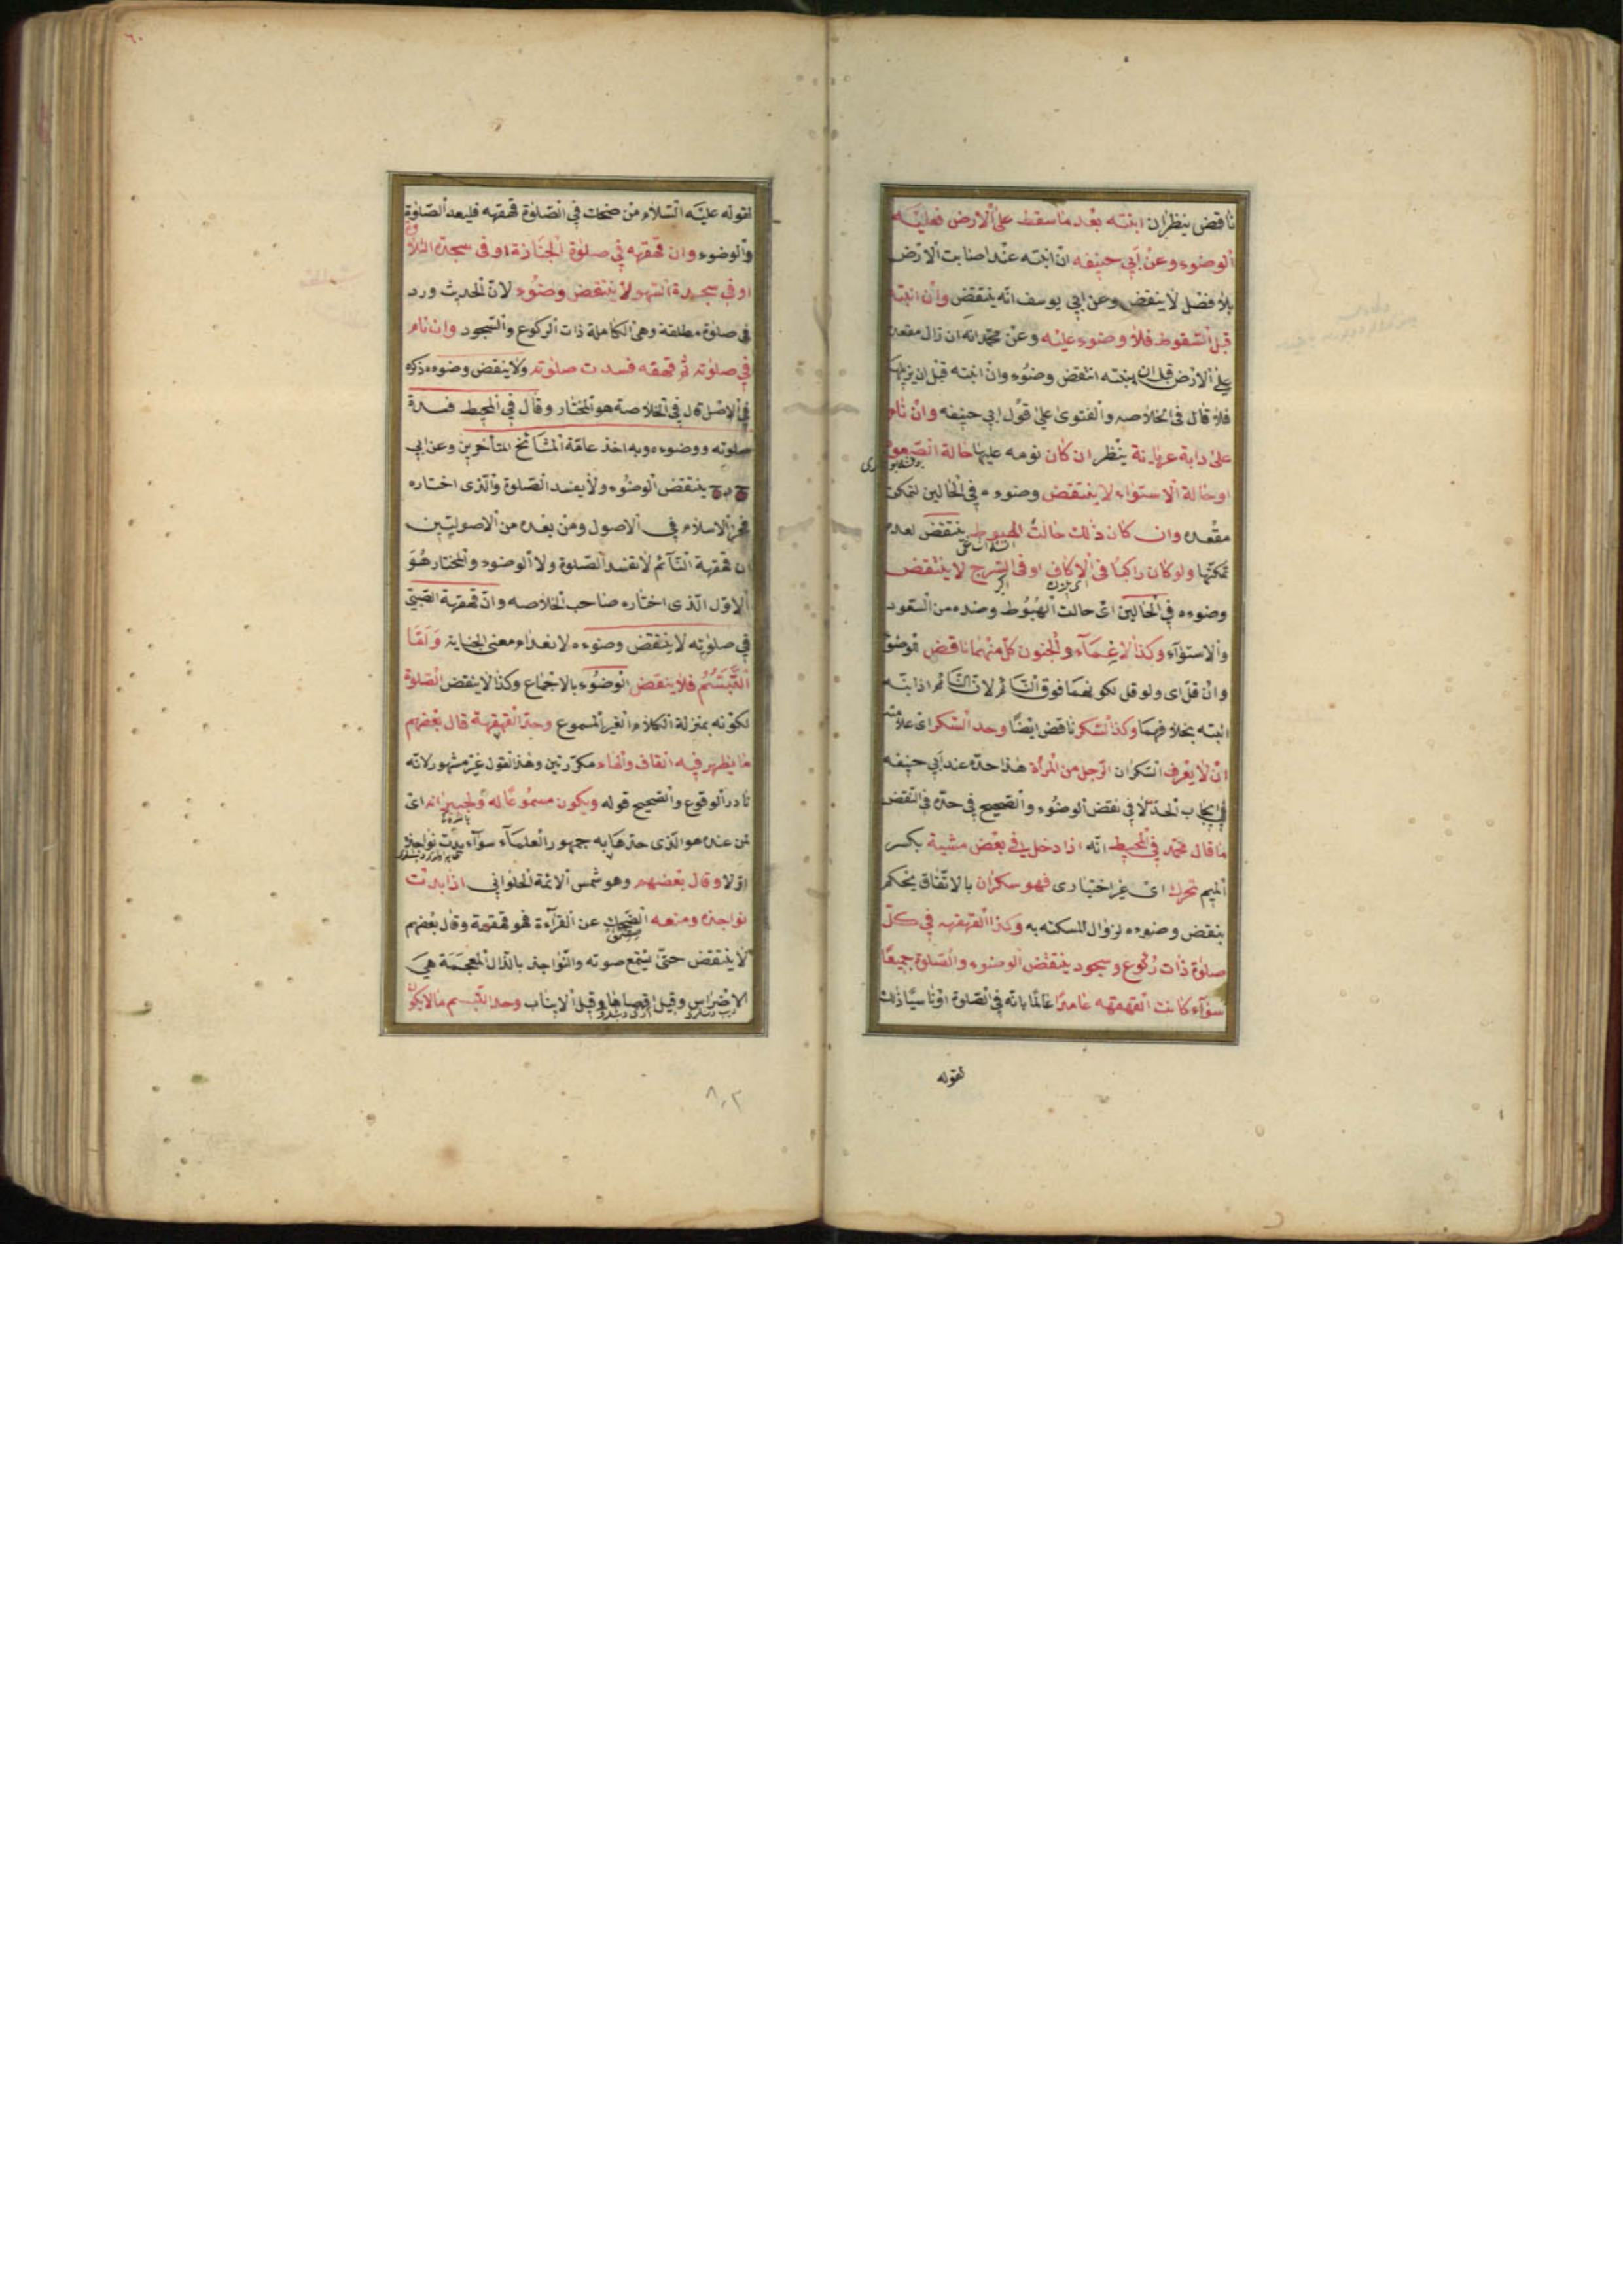 ناقض ينظر ان انتبه بعد ما سقط على الارض فعليه
الوضوء وعن ابي حنيفه ان انتبه عند اصابت الارض
بلا فضل لا ينقض وعن ابي يوسف انه ينتقض وان انتبه
قبل السقوط فلا وضوء عليه وعن محمد انه ان زال مقعده
على الارض قبل ان ينتبه انتقض وضوء وان انتبه قبل ان يزيلها
فلا قال في الخلاصه والفتوى على قول ابي حنيفه وان نام
على دابة عريانة ينظر ان كان نومه عليها حالة الصعود
او حالة الاستواء لا ينتقض وضوءه في الحالين لتمكن
مقعده وان كان ذلك حالت الهبوط ينتقض لعدم
تمكنها ولو كان راكبا في الاكاف او في السرج لا ينتقض
وضوءه في الحالين اى حالت الهبوط وضده من السعود
والاستواء وكذا الاغماء والجنون كل منهما ناقض للوضوء
وان قل اى ولو قل لكونهما فوق النائم لان النائم اذا نبه
انتبه بخلافهما وكذا السكر ناقض ايضا وحد السكر اى علامته
ان لا يعرف السكران الرجل من المرأة هذا حده عند ابي حنيفه
في ايجاب الحد لا في نقض الوضوء والصحيح في حده في النقض
ما قال محمد في المحيط انه اذا دخل في بعض مشية بكسر
الميم تحرك اى غير اختيارى فهو سكران بالاتفاق يحكم
بنقض وضوءه لزوال المسكنه به وكذا القهقهه في كل
صلوة ذات ركوع وسجود ينتقض الوضوء والصلوة جميعا
سواء كانت القهقهه عامدا عالما بانه في الصلوة او ناسيا ذلك
لقوله
لقوله عليه السلام من ضحك في الصلوة قهقهه فليعد الصلوة
والوضوء وان قهقهه في صلوة الجنازة او في سجدة التلاوة
او في سجدة السهو لا ينتقض وضوء لان الحديث ورد
في صلوة مطلقة وهى الكاملة ذات الركوع والسجود وان نام
في صلوته ثم قهقهه فسدت صلوته ولا ينقض وضوءه ذكره
في الاصل قال في الخلاصة هو المختار وقال في المحيط فسدة
صلوته ووضوءه وبه اخذ عامة المشائخ المتأخرين وعن ابي
ح رح ينتقض الوضوء ولا يفسد الصلوة والذى اختاره
فخر الاسلام في الاصول ومن بعده من الاصوليين
ان قهقهة النائم لا تفسد الصلوة ولا الوضوء والمختار هو
الاول الذى اختاره صاحب الخلاصه وان قهقهة الصبي
في صلوته لا ينتقض وضوءه لانعدام معنى الجناية واما
التبسم فلا ينقض الوضوء بالاجماع وكذا لا ينقض الصلوة
لكونه بمنزلة الكلام الغير المسموع وحد القهقهة قال بعضهم
ما يظهر فيه القاف والهاء مكررتين وهذا القول غير مشهور لانه
نادر الوقوع والصحيح قوله ويكون مسموعا له ولجيرانه اى
لمن عنده هو الذى حدها به جمهور العلماء سواء بدت نواجذه
اولا وقال بعضهم وهو شمس الائمة الحلواني اذا بدت
نواجذه ومنعه الضحك عن القراءة فهو قهقهة وقال بعضهم
لا ينتقض حتى يتمع صوته والنواجذ بالذال المعجمة هي
الاضراس وقيل اقصاها وقيل الانياب وحد التبسم ما لا يكون
٨٠٢